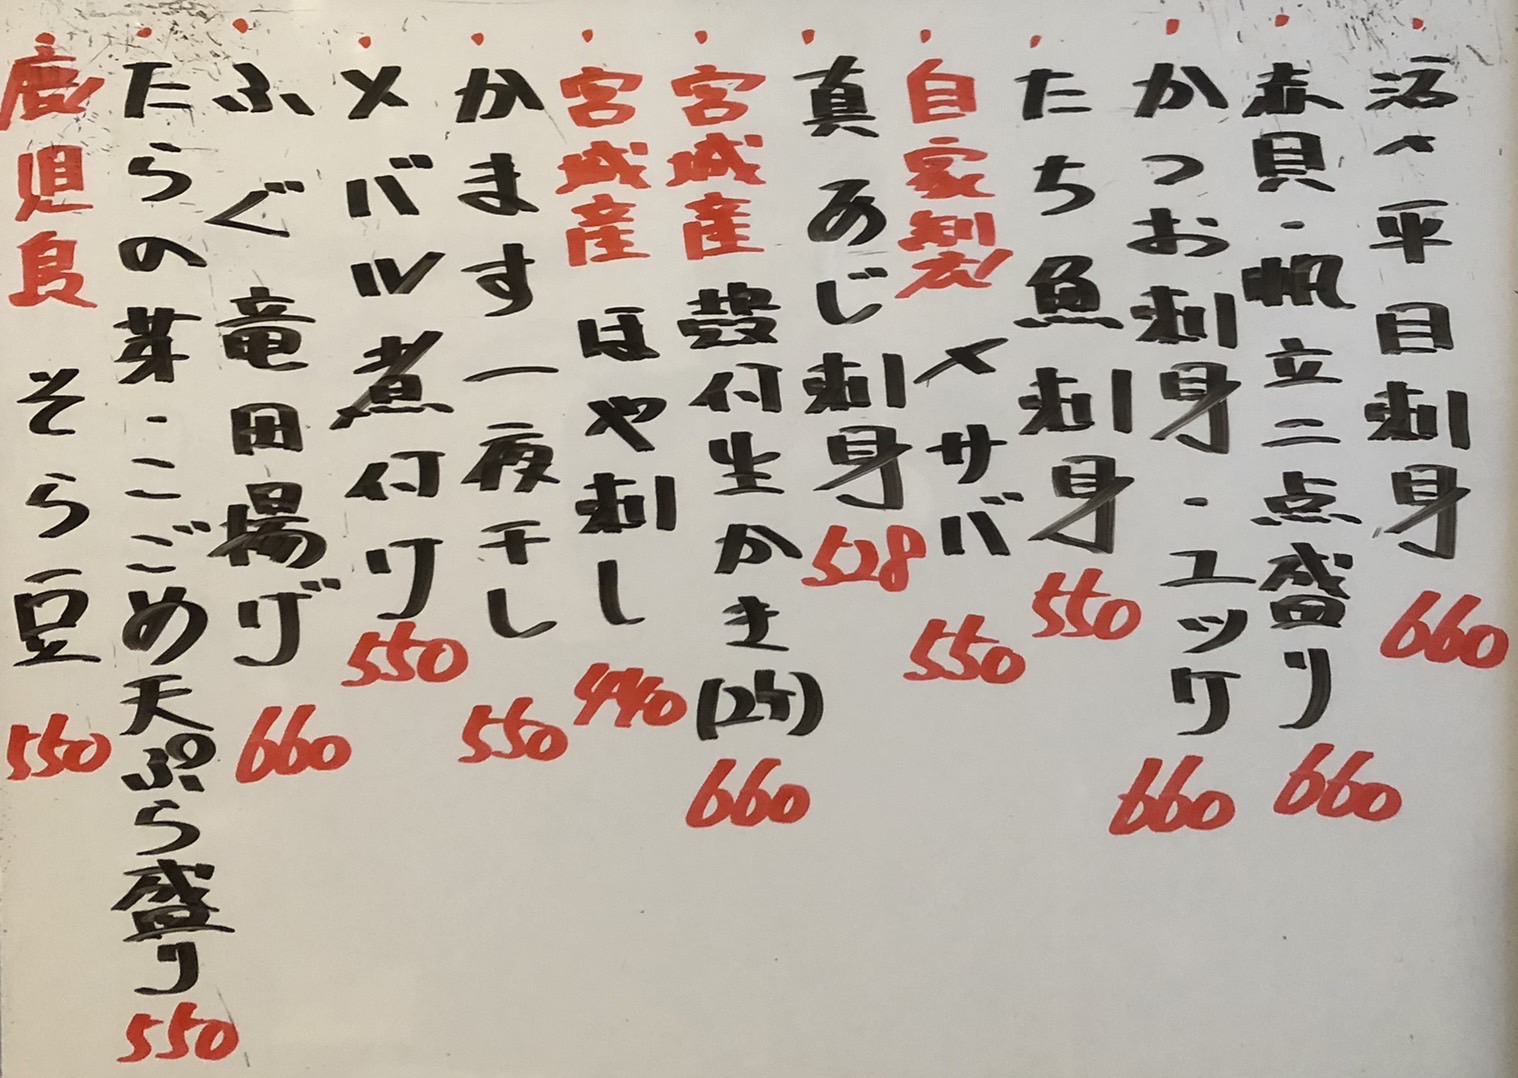 活〆平目刺身 660
赤貝・帆立二点盛り 660
かつお刺身・ユッケ 660
たち魚刺身 550
自家製〆サバ 550
真あじ刺身 528
宮城産殻付生かき(2ケ) 660
宮城産ほや刺し 440
かます一夜干し 550
メバル煮付け 550
ふぐ竜田揚げ 660
たらの芽・こごめ天ぷら盛り 550
鹿児島そら豆 550